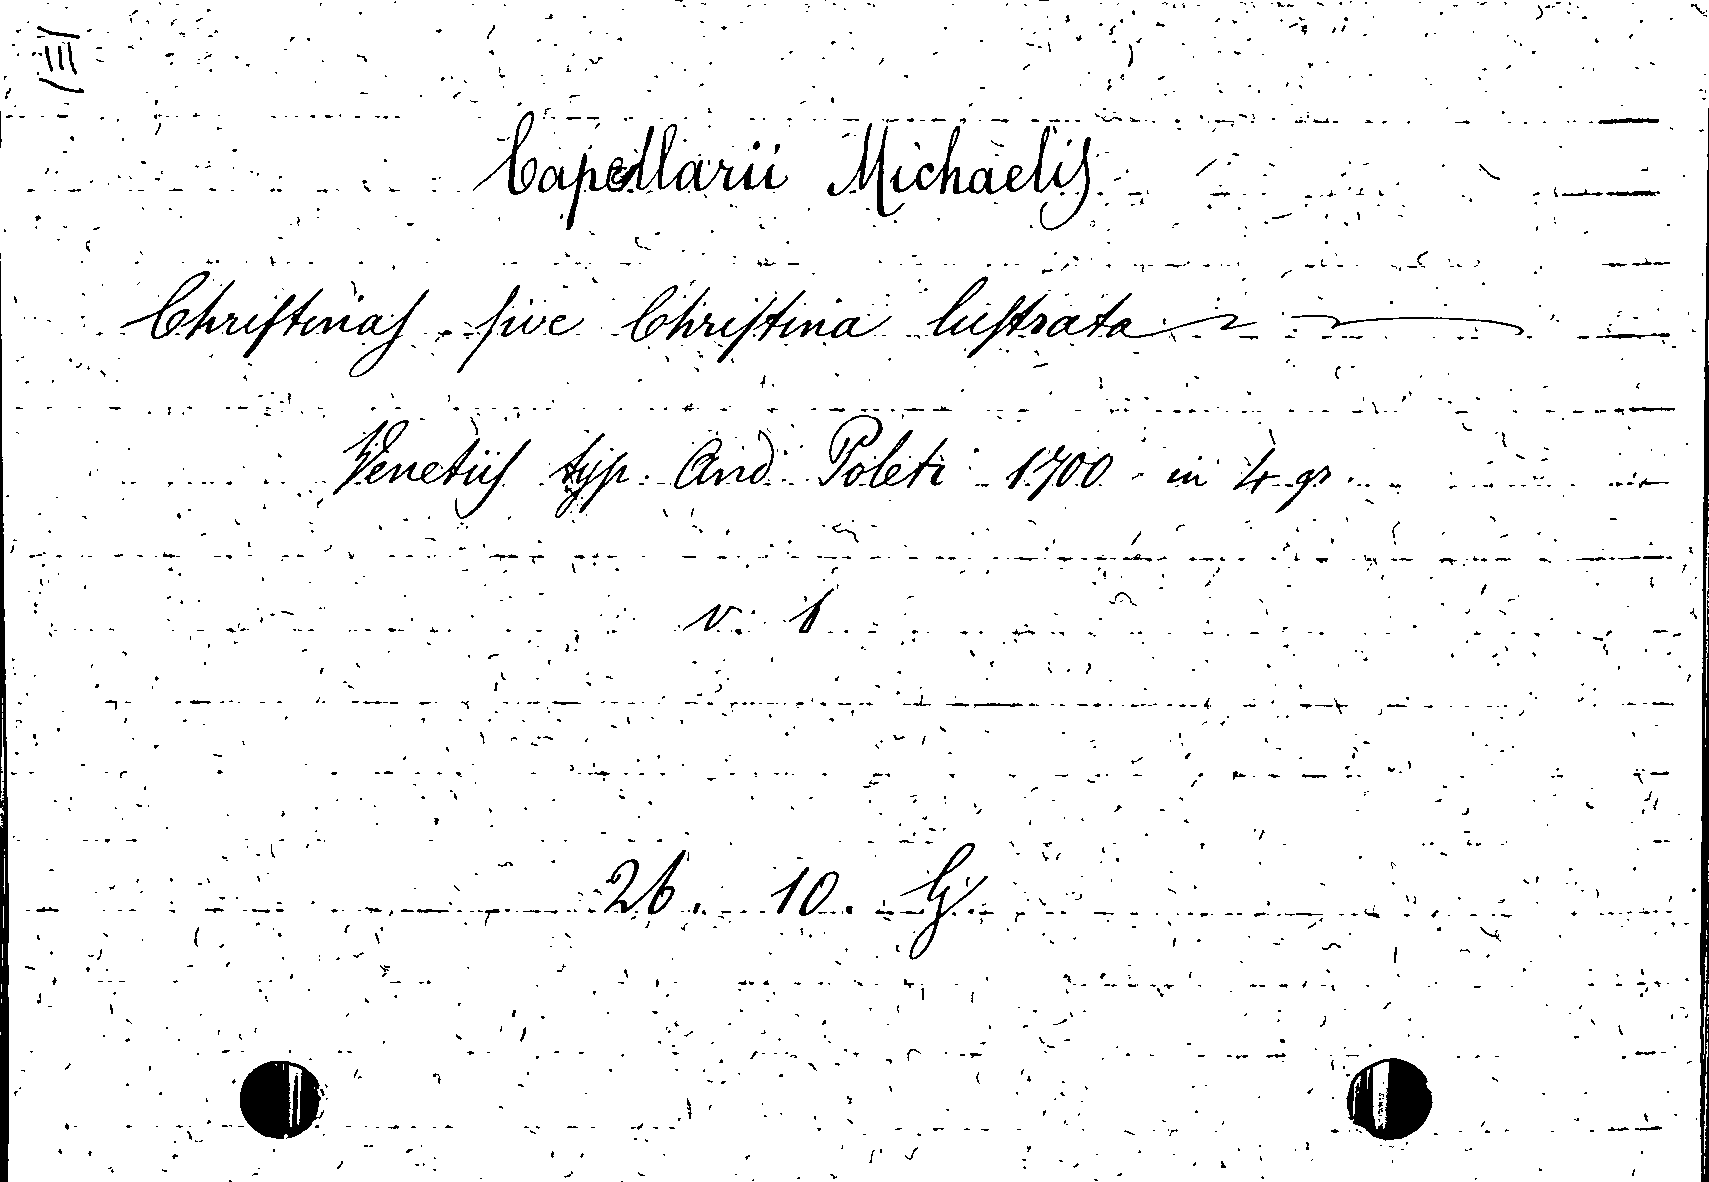 Capellarii Michaelis
Christinas sive Christina lustrata
Venetiis typ. And. Poleti 1700 in 4 gr.
v. 1
26. 10. G